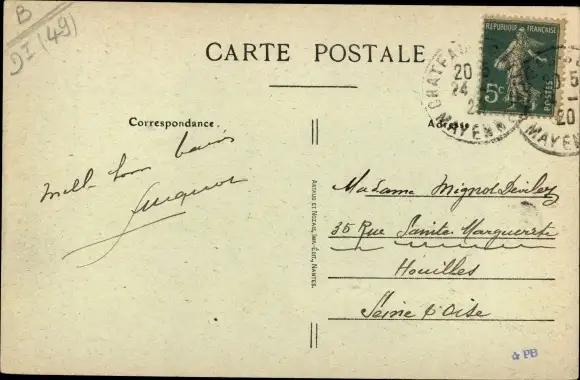 B
DI (49)
CARTE POSTALE
REPUBLIQUE FRANÇAISE
5c
POSTES
CHATEAU
20
24
MAYENNE
MAYENN
20
Correspondance.
Adresse
Mill bons baisers
ARTAUD ET NOZAIS, IMP.-ÉDIT., NANTES.
Madame Mignot Deviley
35 Rue Sainte Marguerite
Houilles
Seine & Oise
PB